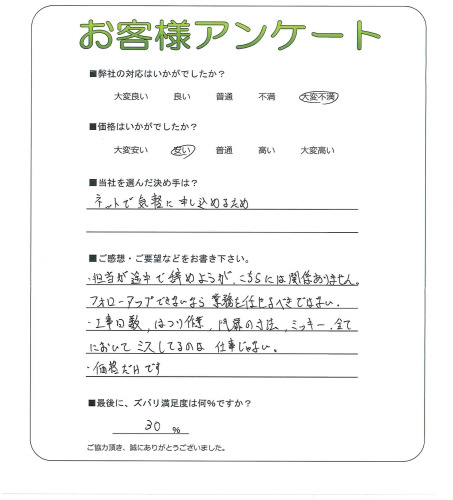 お客様アンケート
■弊社の対応はいかがでしたか？
大変良い　良い　普通　不満　大変不満
■価格はいかがでしたか？
大変安い　安い　普通　高い　大変高い
■当社を選んだ決め手は？
ネットで気軽に申し込めるため
■ご感想・ご要望などをお書き下さい。
・担当が途中で辞めようが、こちらには関係ありません。
フォローアップできないなら業務を任せるべきではない．
・工事日数，はつり作業，門扉の寸法，ミッキー．全て
においてミスしてるのは仕事じゃない。
・価格だけです
■最後に、ズバリ満足度は何％ですか？
30 ％
ご協力頂き、誠にありがとうございました。